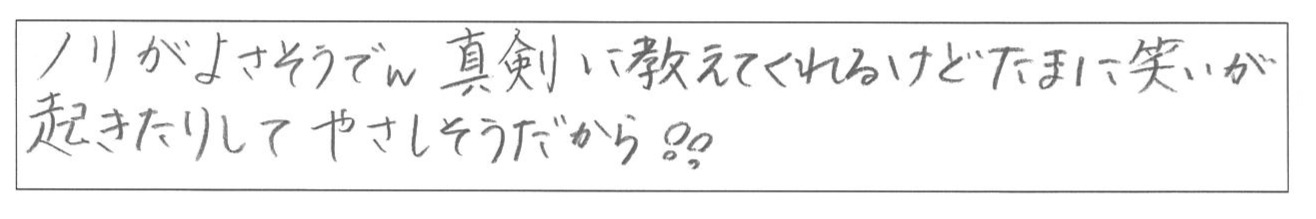 ノリがよさそうでん 真剣に教えてくれるけどたまに笑いが
起きたりして やさしそうだから!!